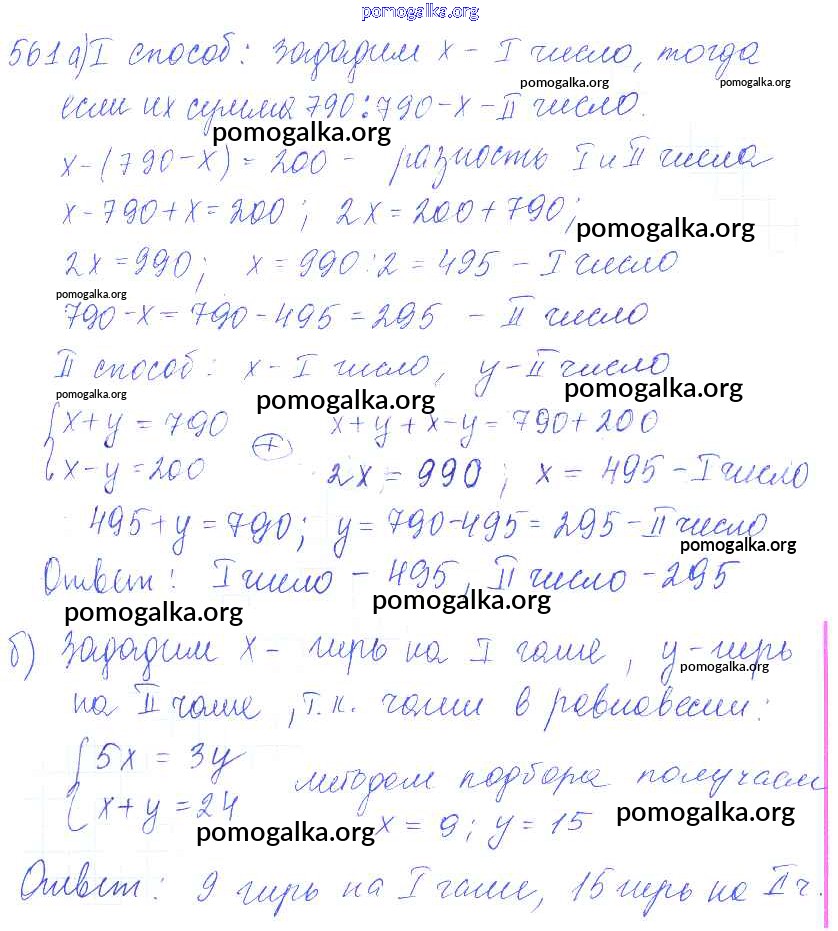 pomogalka.org
561 а) I способ: зададим x - I число, тогда
pomogalka.org pomogalka.org
если их сумма 790: 790-x - II число.
pomogalka.org
x-(790-x) = 200 - разность I и II числа
pomogalka.org
x-790+x=200; 2x=200+790;
pomogalka.org
2x=990; x=990:2=495 - I число
pomogalka.org
790-x=790-495=295 - II число
II способ: x - I число, y - II число
pomogalka.org pomogalka.org pomogalka.org
x+y=790 x+y+x-y=790+200
x-y=200 + 2x=990; x=495 - I число
495+y=790; y=790-495=295 - II число
pomogalka.org
Ответ: I число - 495, II число - 295
pomogalka.org pomogalka.org
б) Зададим x - гирь на I чаше, y - гирь
pomogalka.org
на II чаше, т.к. чаши в равновесии:
5x=3y
методом подбора получаем
x+y=24
pomogalka.org pomogalka.org
x=9; y=15
Ответ: 9 гирь на I чаше, 15 гирь на II ч.